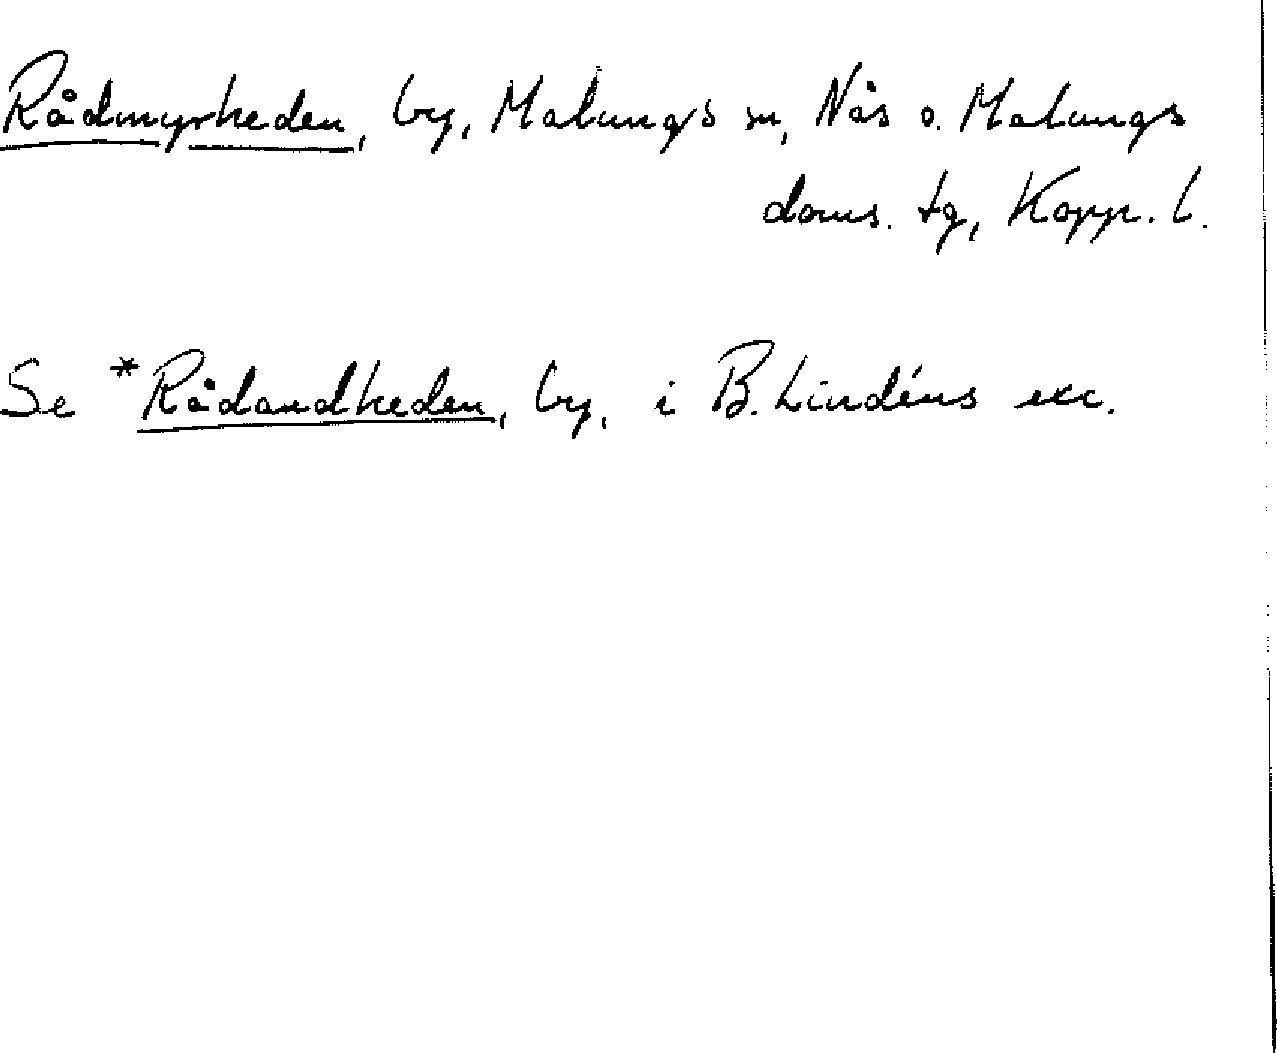 Rådmyrheden, by, Malungs sn, Nås o. Malungs
doms. tg, Kopp. l.
Se *Rådandheden, by, i B. Lindéns exc.